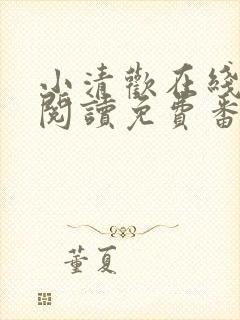 小清歡在綫
閱讀免費番
董夏